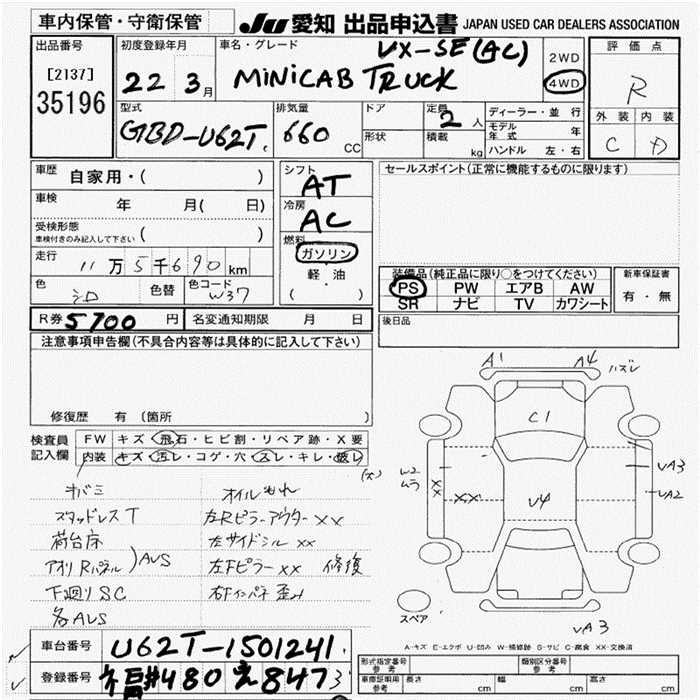 車内保管・守衛保管
JU 愛知 出品申込書 JAPAN USED CAR DEALERS ASSOCIATION
出品番号
[2137]
35196
初度登録年月
22 3月
車名・グレード
VX-SE(AC)
MINICAB TRUCK
2WD
4WD
評価点
R
外装 内装
C D
型式
GBD-U62T
排気量
660 CC
ドア
形状
定員
2人
積載
kg
ディーラー・並行
モデル年式 年
ハンドル 左・右
車歴
自家用・( )
車検
年 月( 日)
受検形態
車検付きのみ記入して下さい ( )
走行
11万5千690km
色
シロ
色替
色コード
W37
シフト
AT
冷房
AC
燃料
ガソリン
軽・油
( )
セールスポイント(正常に機能するものに限ります)
装備品(純正品に限り○をつけてください)
PS PW エアB AW
SR ナビ TV カワシート
新車保証書
有・無
後日品
R券 5700円
名変通知期限 月 日
注意事項申告欄(不具合内容等は具体的に記入して下さい)
修復歴 有(箇所 )
検査員記入欄
FW キズ・飛石・ヒビ割・リペア跡・X要
内装 キズ・汚レ・コゲ・穴・スレ・キレ・破レ
(大)
オイルもれ
スタッドレスT
左Rピラーアウターxx
荷台床
左サイドシルxx
アオリRパネル)AVS
左Fピラーxx 修復
下廻りSC
右Fインパネ歪み
各AVS
A1 A4 ハズレ
C1
W2
ムラ
xx
xx
V4
VA3
VA2
スペア
VA3
A-キズ E-エクボ U-凹み W-補修跡 S-サビ C-腐食 XX-交換済
車台番号
U62T-1501241
登録番号
福井480え8473
形式指定番号
参考
類別区分番号
参考
車庫証明用
参考
長さ cm
幅 cm
高さ cm